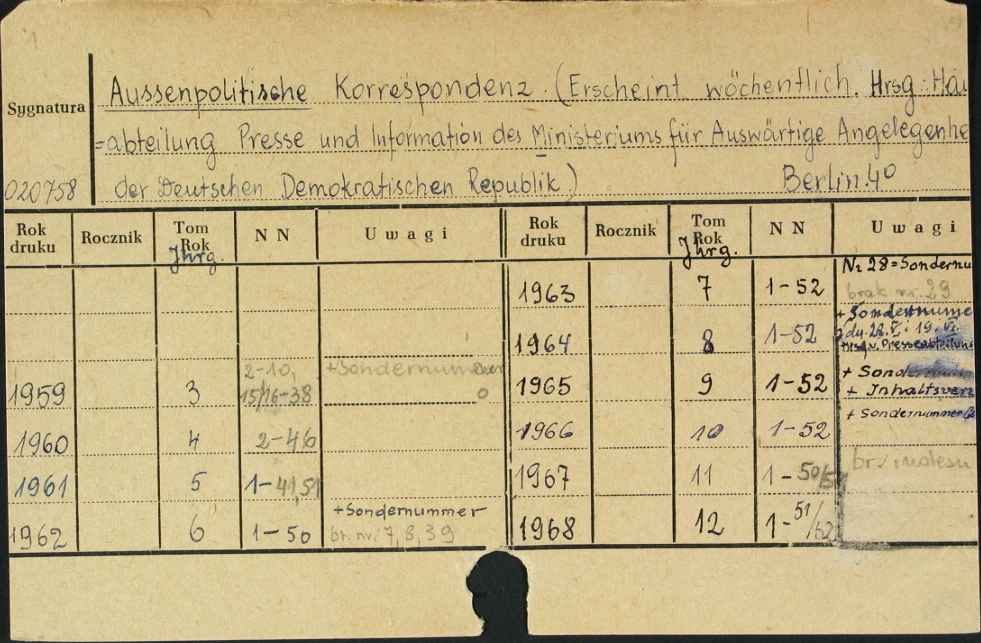 Sygnatura
020758
Aussenpolitische Korrespondenz. (Erscheint wöchentlich. Hrsg: Hau
=abteilung Presse und Information des Ministeriums für Auswärtige Angelegenhe
der Deutschen Demokratischen Republik) Berlin 40
Rok druku Rocznik Tom Rok Jhrg. NN Uwagi Rok druku Rocznik Tom Rok Jhrg. NN Uwagi
1959 3 2-10, 15/16-38 +Sondernummer
1960 4 2-46
1961 5 1-41,51
1962 6 1-50 +Sondernummer br. nr. 7, 8, 39
1963 7 1-52 Nr 28=Sondernu brak nr. 29
1964 8 1-52 + Sondernumme
Hrsg. v. Presseabteilung
1965 9 1-52 + Sondernumm
+ Inhaltsverz
1966 10 1-52 + Sondernummer
1967 11 1-50/52
1968 12 1-51/52